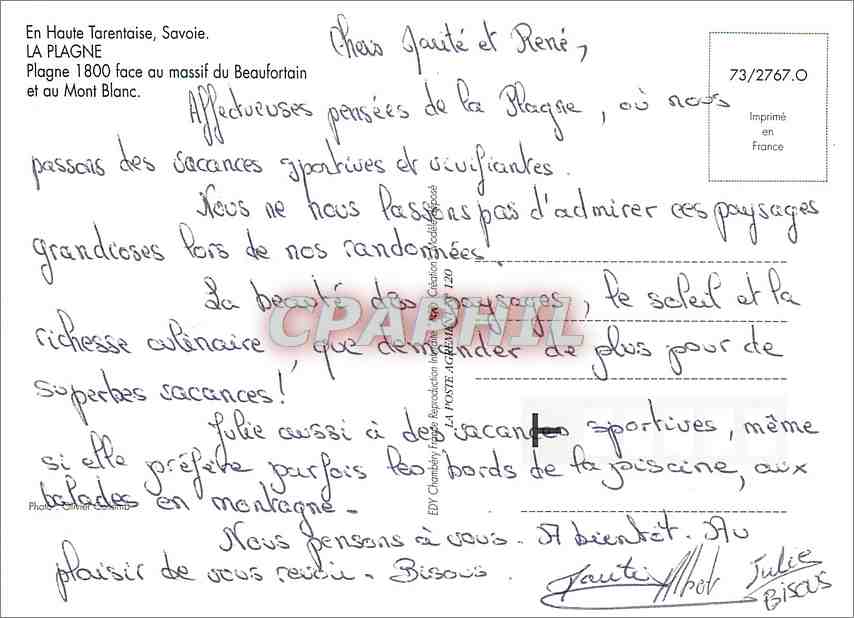 En Haute Tarentaise, Savoie.
LA PLAGNE
Plagne 1800 face au massif du Beaufortain
et au Mont Blanc.
73/2767.O
Imprimé
en
France
Chers et René,
Affectueuses pensées de la Plagne, où nous
passons des vacances sportives et vivifiantes.
Nous ne nous lassons pas d'admirer ces paysages
grandioses lors de nos randonnées.
La beauté des paysages, le soleil et la
richesse culinaire, que demander de plus pour de
superbes vacances!
Julie aussi à des vacances sportives, même
si elle préfère parfois les bords de la piscine, aux
balades en montagne.
Nous pensons à vous. A bientôt. Au
plaisir de vous revoir. Bisous.
Julie
BISOUS
Photo : Olivier
EDY Chambéry France Reproduction Interdite Création et Modèle déposé
LA POSTE AGREMENT 120
CPARHIL